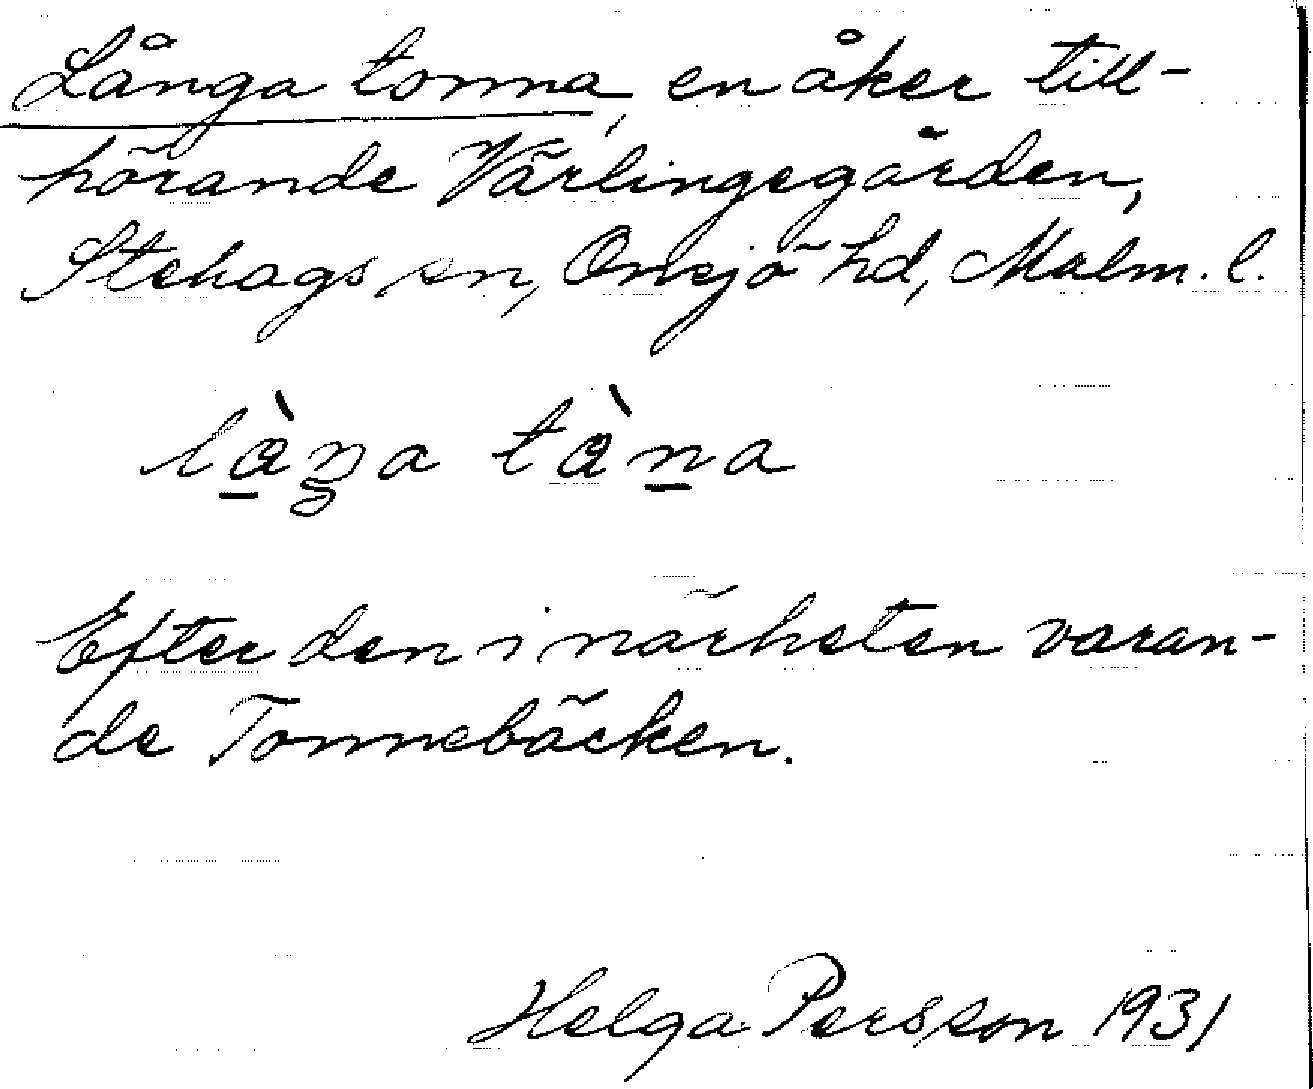 Långa tonna, en åker till-
hörande Värlingegården,
Stehags sn, Onsjö hd, Malm. l.
là̱ŋa tàṉa
Efter den i närheten varan-
de Tonnebäcken.
Helga Persson 1931